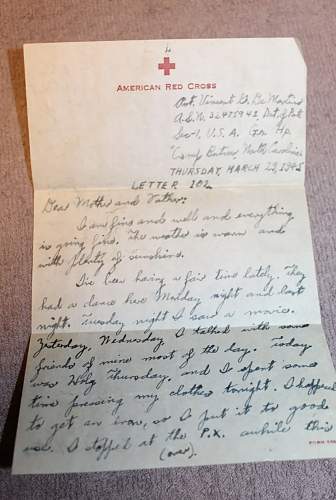 AMERICAN RED CROSS
Pvt. Vincent G. De
A.S.N. 32475942, Det. of Pat
U.S.A. Gen Hp.
Camp Butner, North Carolina
THURSDAY, MARCH 29, 1945
LETTER 102
Dear Mother and Father:
I am fine and well and everything
is going fine. The weather is warm and
with plenty of sunshine.
I've been having a fair time lately. They
had a dance here Monday night and last
night. Tuesday night I saw a movie.
Yesterday, Wednesday, I talked with some
friends of mine most of the day. Today
was Holy Thursday, and I spent some
time pressing my clothes tonight. I happened
to get an iron, so I put it to good
use. I stopped at the P.X. awhile this
(over)
FORM